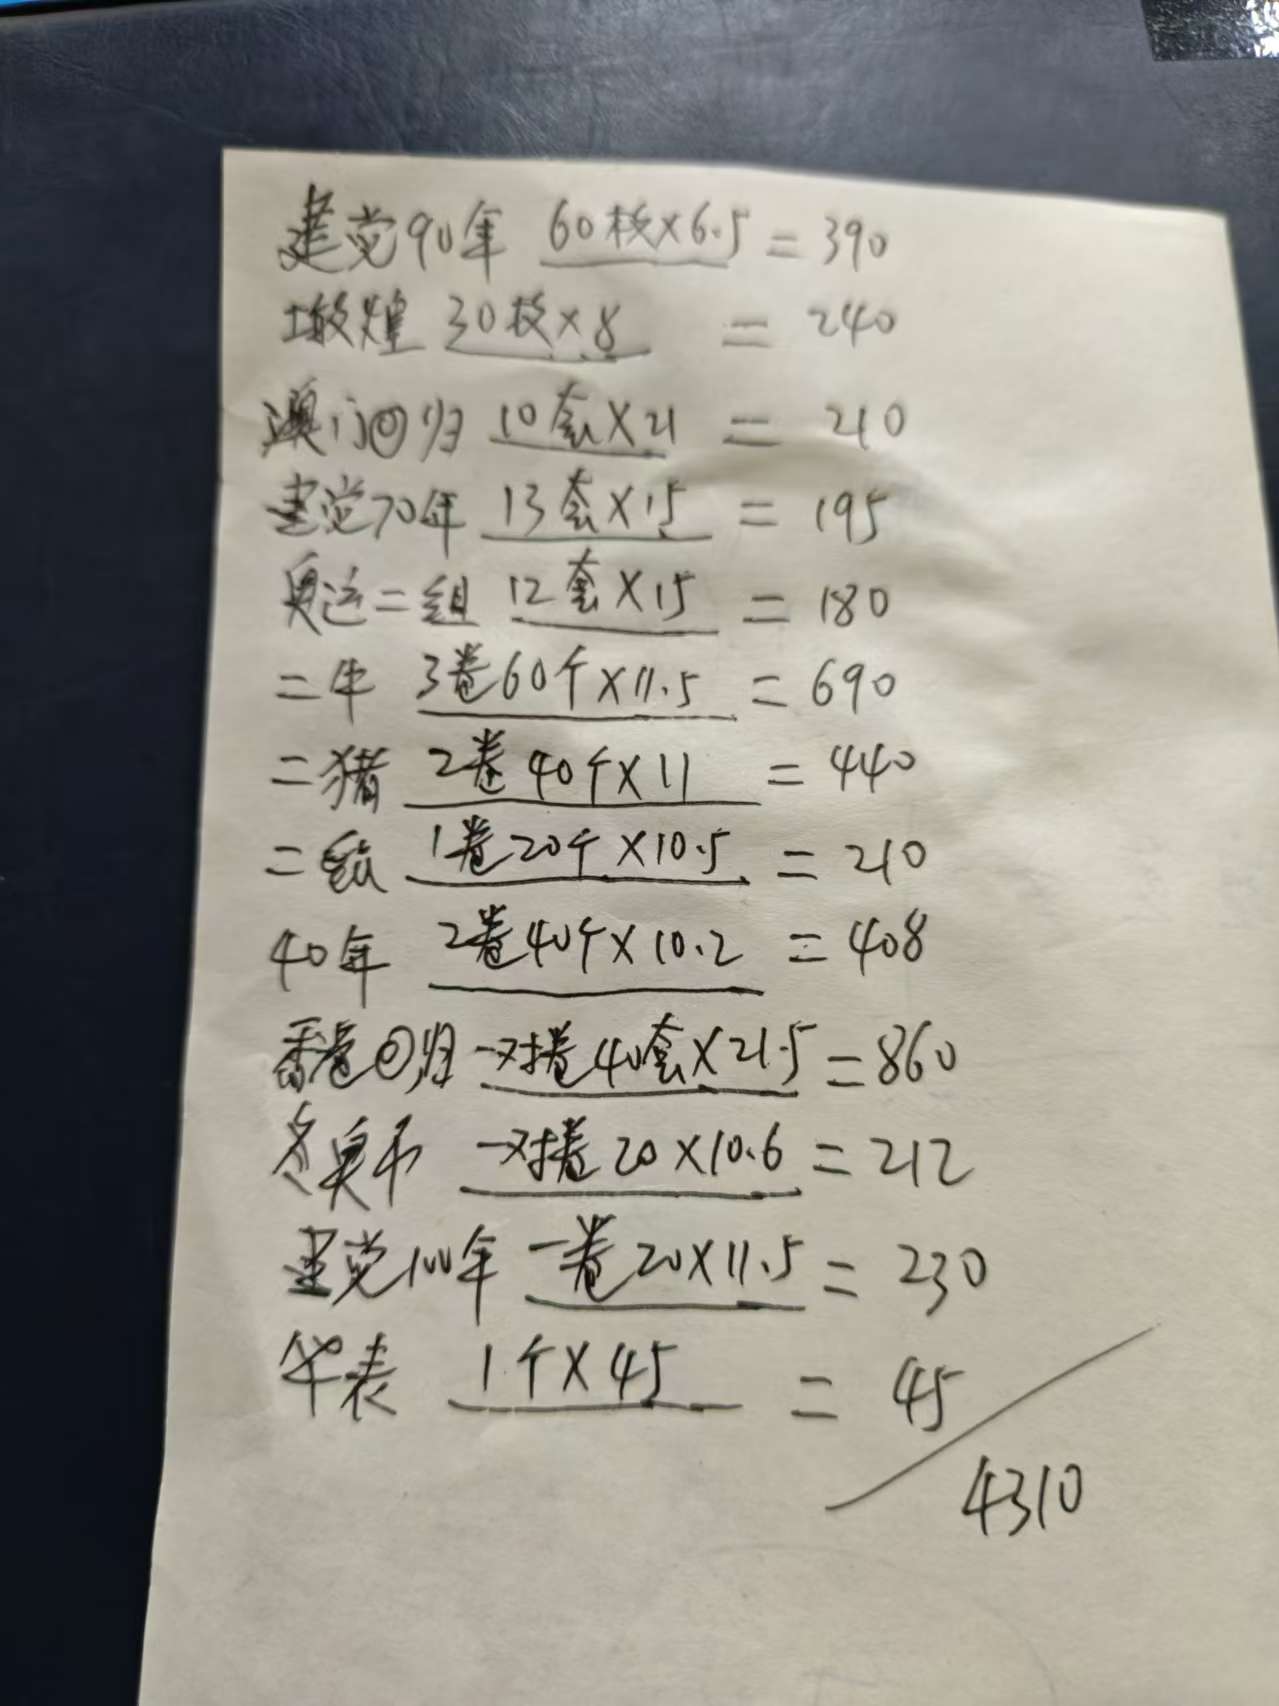 建党90年 60枚×6.5=390
敦煌 30枚×8=240
澳门回归 10套×21=210
建党70年 13套×15=195
奥运二组 12套×15=180
二牛 3卷60个×11.5=690
二猪 2卷40个×11=440
二 1卷20个×10.5=210
40年 2卷40个×10.2=408
香港回归 一对卷40套×21.5=860
冬奥币 一对卷20×10.6=212
建党100年 一卷20×11.5=230
华表 1个×45=45
4310